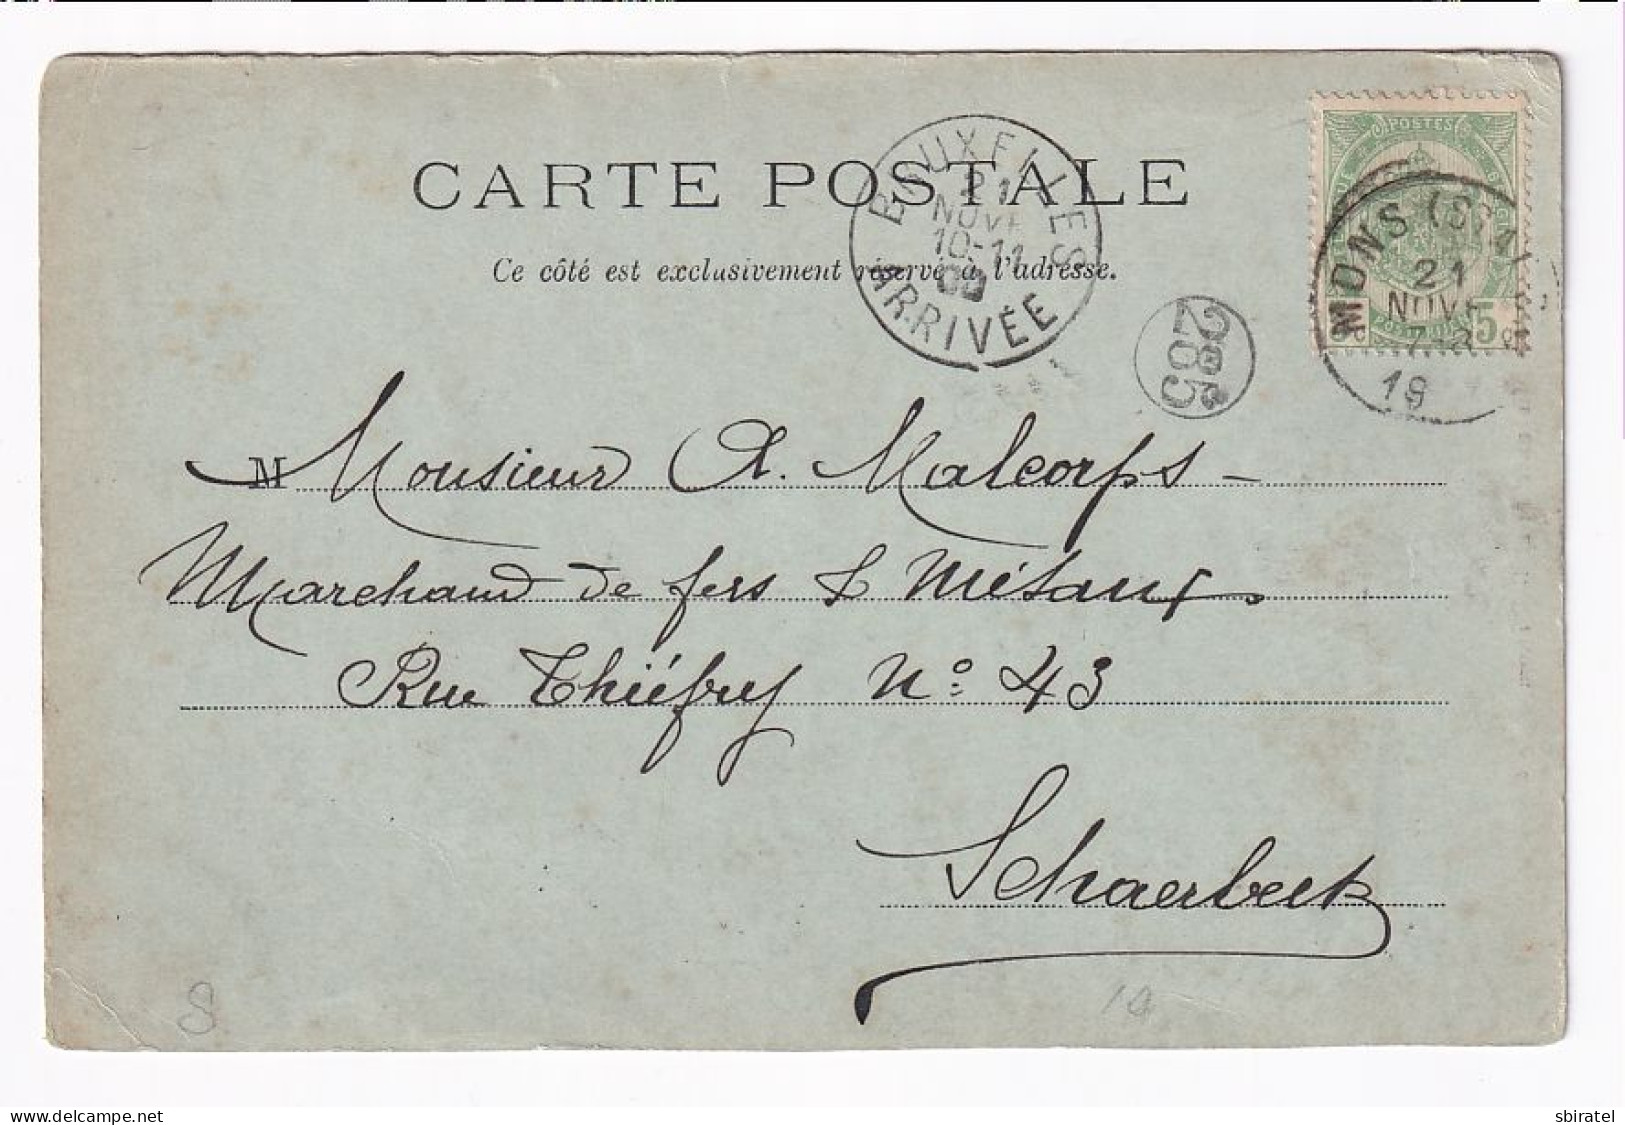 CARTE POSTALE
Ce côté est exclusivement réservé à l'adresse.
BRUXELLES
21
NOVE
10-11
ARRIVÉE
285
POSTES
5
MONS (STA
21
NOVE
7-8
19
M Monsieur A. Malcorps -
Marchand de fers & Métaux
Rue Thiéfry N° 43
Schaerbeek
S
delcampe.net
sbiratel